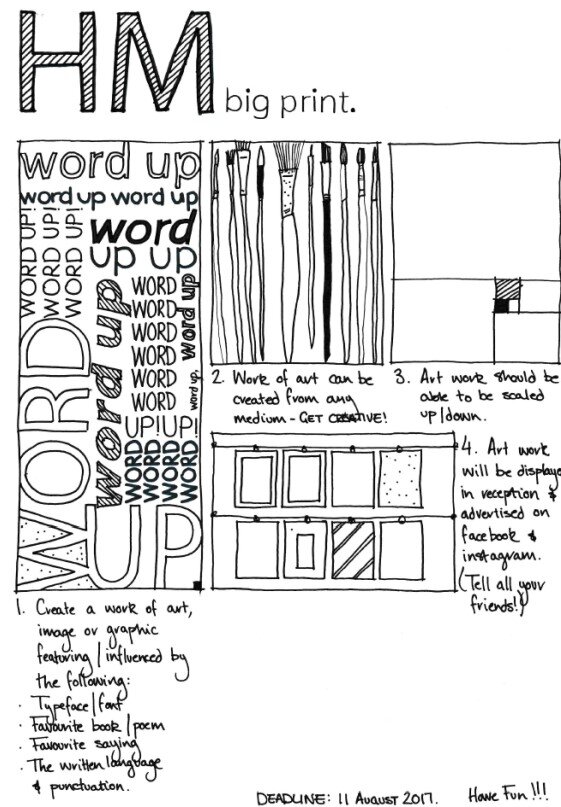 HM
big print.
word up
word up word up
WORD UP!
WORD UP!
WORD UP!
word
up up
word up
WORD
WORD
WORD
WORD
WORD
WORD
UP!UP!
word up
word up.
WORD
WORD
WORD
WORD
WORD
UP
1. Create a work of art,
image or graphic
featuring/influenced by
the following:
· Typeface/font
· Favourite book/poem
· Favourite saying
· The written language
& punctuation.
2. Work of art can be
created from any
medium - GET CREATIVE!
3. Art work should be
able to be scaled
up/down.
4. Art work
will be displayed
in reception &
advertised on
facebook &
instagram.
(Tell all your
friends!)
DEADLINE: 11 AUGUST 2017. Have Fun!!!